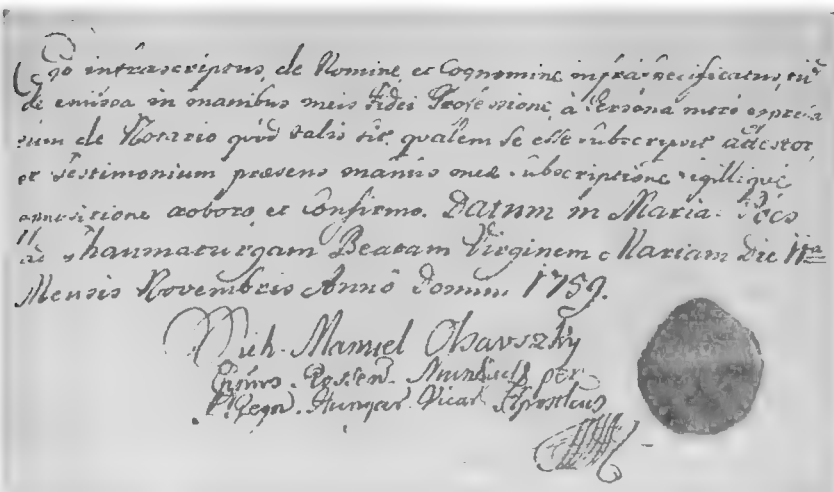 Ego infrascriptus, de Nomine, et Cognomine infra specificatus, tũ
de emissa in manibus meis Fidei Professione, à Persona mere expres
sum de Notario quod talis sit, qualem se esse subscripsit attestor
et Testimonium praesens manus meae subscriptione, sigillique
appositione roboro, et Confirmo. Datum in Maria-Pócs
ad Thaumaturgam Beatam Virginem Mariam Die 11ma
Mensis Novembris Anno Domini 1759.
Mich. Manuel Olsavszky
Eppus. Rossen. Munkacs per
Regn. Hungar. Vicar. Apostlcus